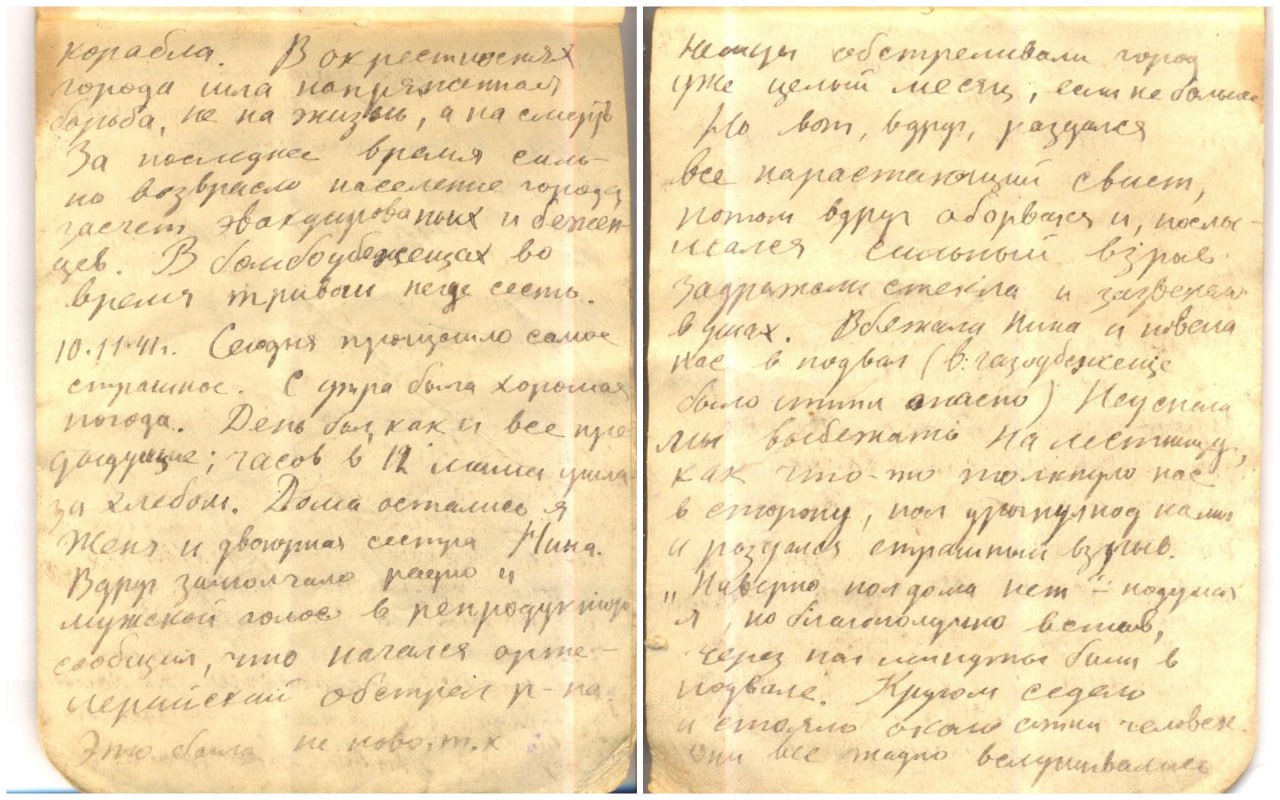 корабла. В окрестностях
города шла напряженная
борьба, не на жизнь, а на смерть
За последнее время силь-
но возврасло население города
засчет эвакуированых и бежен-
цев. В бомбоубежещах во
время тривоги негде сесть.
10.11.41г. Сегодня произошло самое
страшное. С утра была хорошая
погода. День был, как и все пре-
дыдущие; часов в 12 мама ушла
за хлебом. Дома остались я
Женя и двоюрная сестра Нина.
Вдруг замолчало радио и
мужской голос в репродукторе
сообщил, что начался арте-
лерийский обстрел р-на
Это было не ново, т.к
немцы обстреливали город
уже целый месяц, если не больше
Но вот, вдруг, раздался
все нарастающий свист,
потом вдруг оборвался и, послы-
шался сильный взрыв.
Задражали стекла и зазвенело
в ушах. Вбежала Нина и повела
нас в подвал (в газоубежеще
было опасно) Не успели
мы выбежать на лестницу,
как что-то толкнуло нас
в сторону, пол под нами
и раздался страшный взрыв.
„Наверно пол дома нет" – подумал
я, но благополучно встав,
через пол минуты были в
подвале. Кругом седело
и стояло около сотни человек.
они все жадно вслушивались